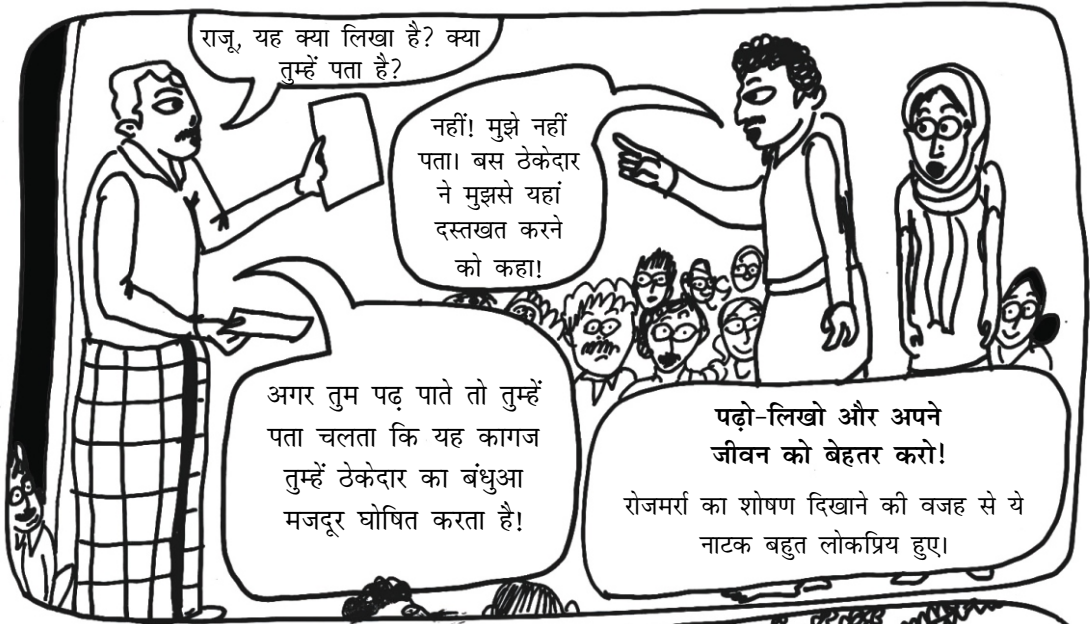 राजू, यह क्या लिखा है? क्या
तुम्हें पता है?
नहीं! मुझे नहीं
पता। बस ठेकेदार
ने मुझसे यहां
दस्तखत करने
को कहा!
अगर तुम पढ़ पाते तो तुम्हें
पता चलता कि यह कागज
तुम्हें ठेकेदार का बंधुआ
मजदूर घोषित करता है!
पढ़ो-लिखो और अपने
जीवन को बेहतर करो!
रोजमर्रा का शोषण दिखाने की वजह से ये
नाटक बहुत लोकप्रिय हुए।